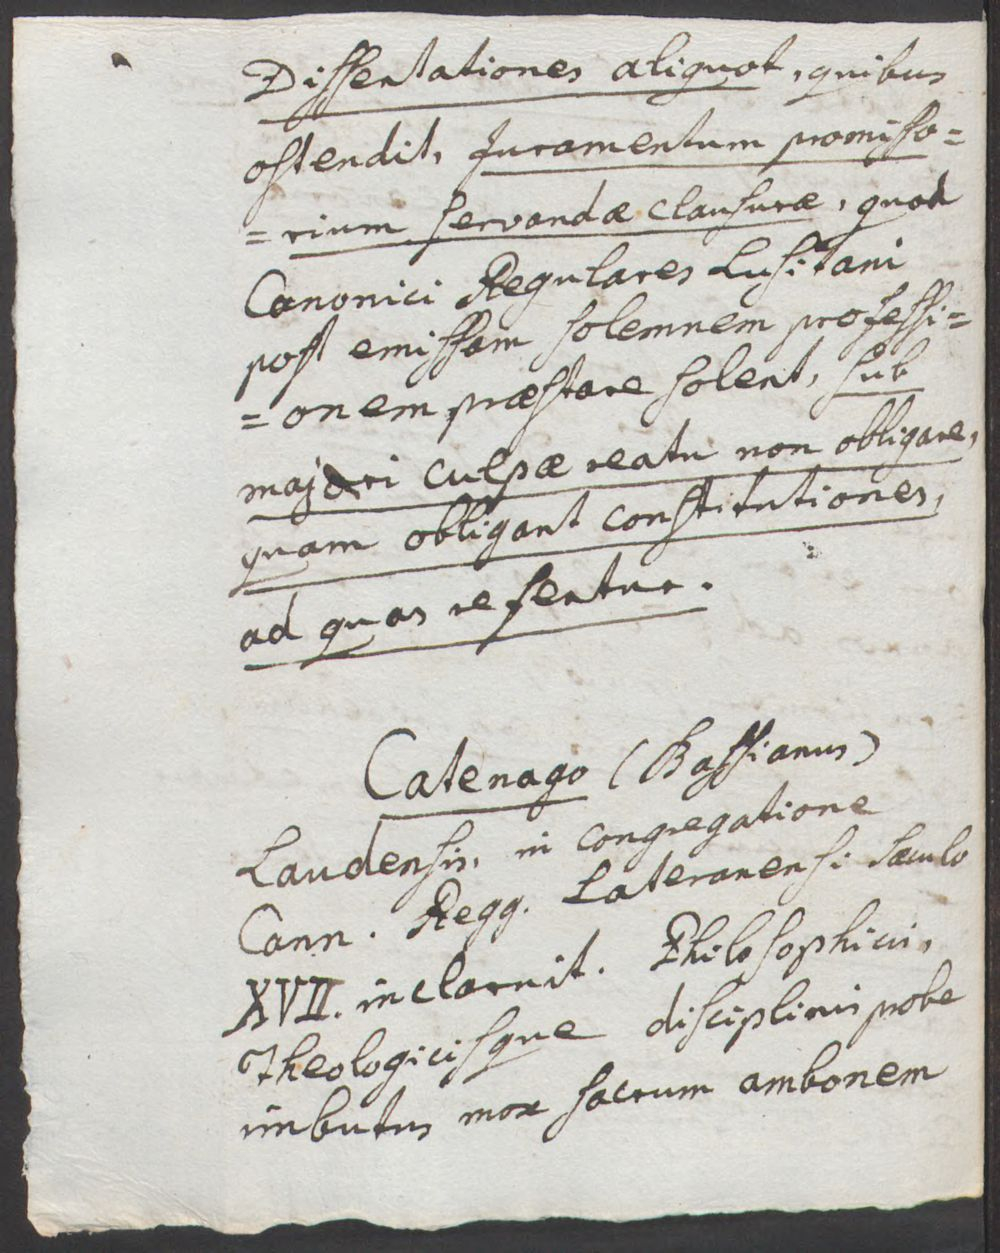 Dissertationes aliquot, quibus
ostendit, Juramentum promisso=
=rium servandæ clausuræ, quod
Canonici Regulares Lusitani
post emissam solemnem professi=
=onem præstare solent, sub
majori culpæ reatu non obligare,
quam obligant constitutiones,
ad quas refertur.
Catenago (Bassianus)
Laudensis, in congregatione
Cann. Regg. Lateranensi sæculo
XVII. inclaruit. Philosophicis,
Theologicisque disciplinis probe
imbutus mox sacrum ambonem